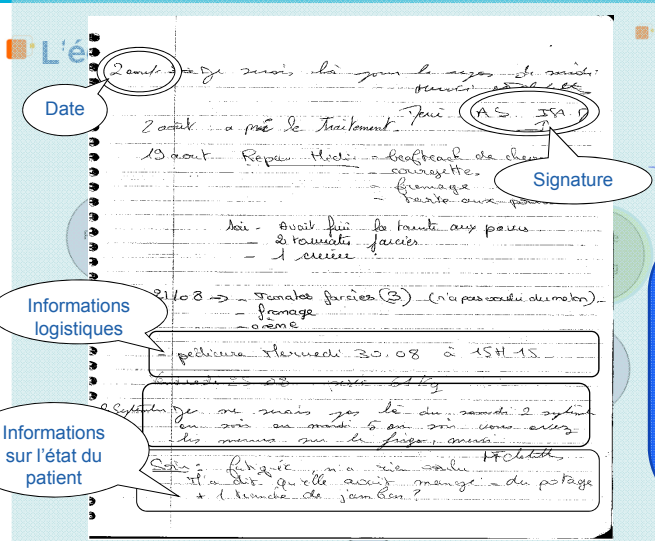 L'é
Date
Signature
Informations logistiques
Informations sur l'état du patient
2 août Je serais là pour le repas de midi
merci
2 août a pris le traitement. A.S.
19 aout Repas Midi - beafteack de cheval
- courgettes
- fromage
- tarte aux
Soir - Avait fini la tarte aux poires
- 2 tomates farcies
- 1 crème
21/08 -> - Tomates farcies (3) (n'a pas voulu du melon)
- fromage
- crème
- pédicure Mercredi 30.08 à 15H15
25 08 61 Kg
2 Septembre Je ne serais pas là du samedi 2 septembre
au soir au mardi 5 au soir vous avez
les menus sur le frigo, merci
Soir : fatiguée, n'a rien voulu
M'a dit qu'elle avait mangé - du potage
+ 1 tranche de jambon ?